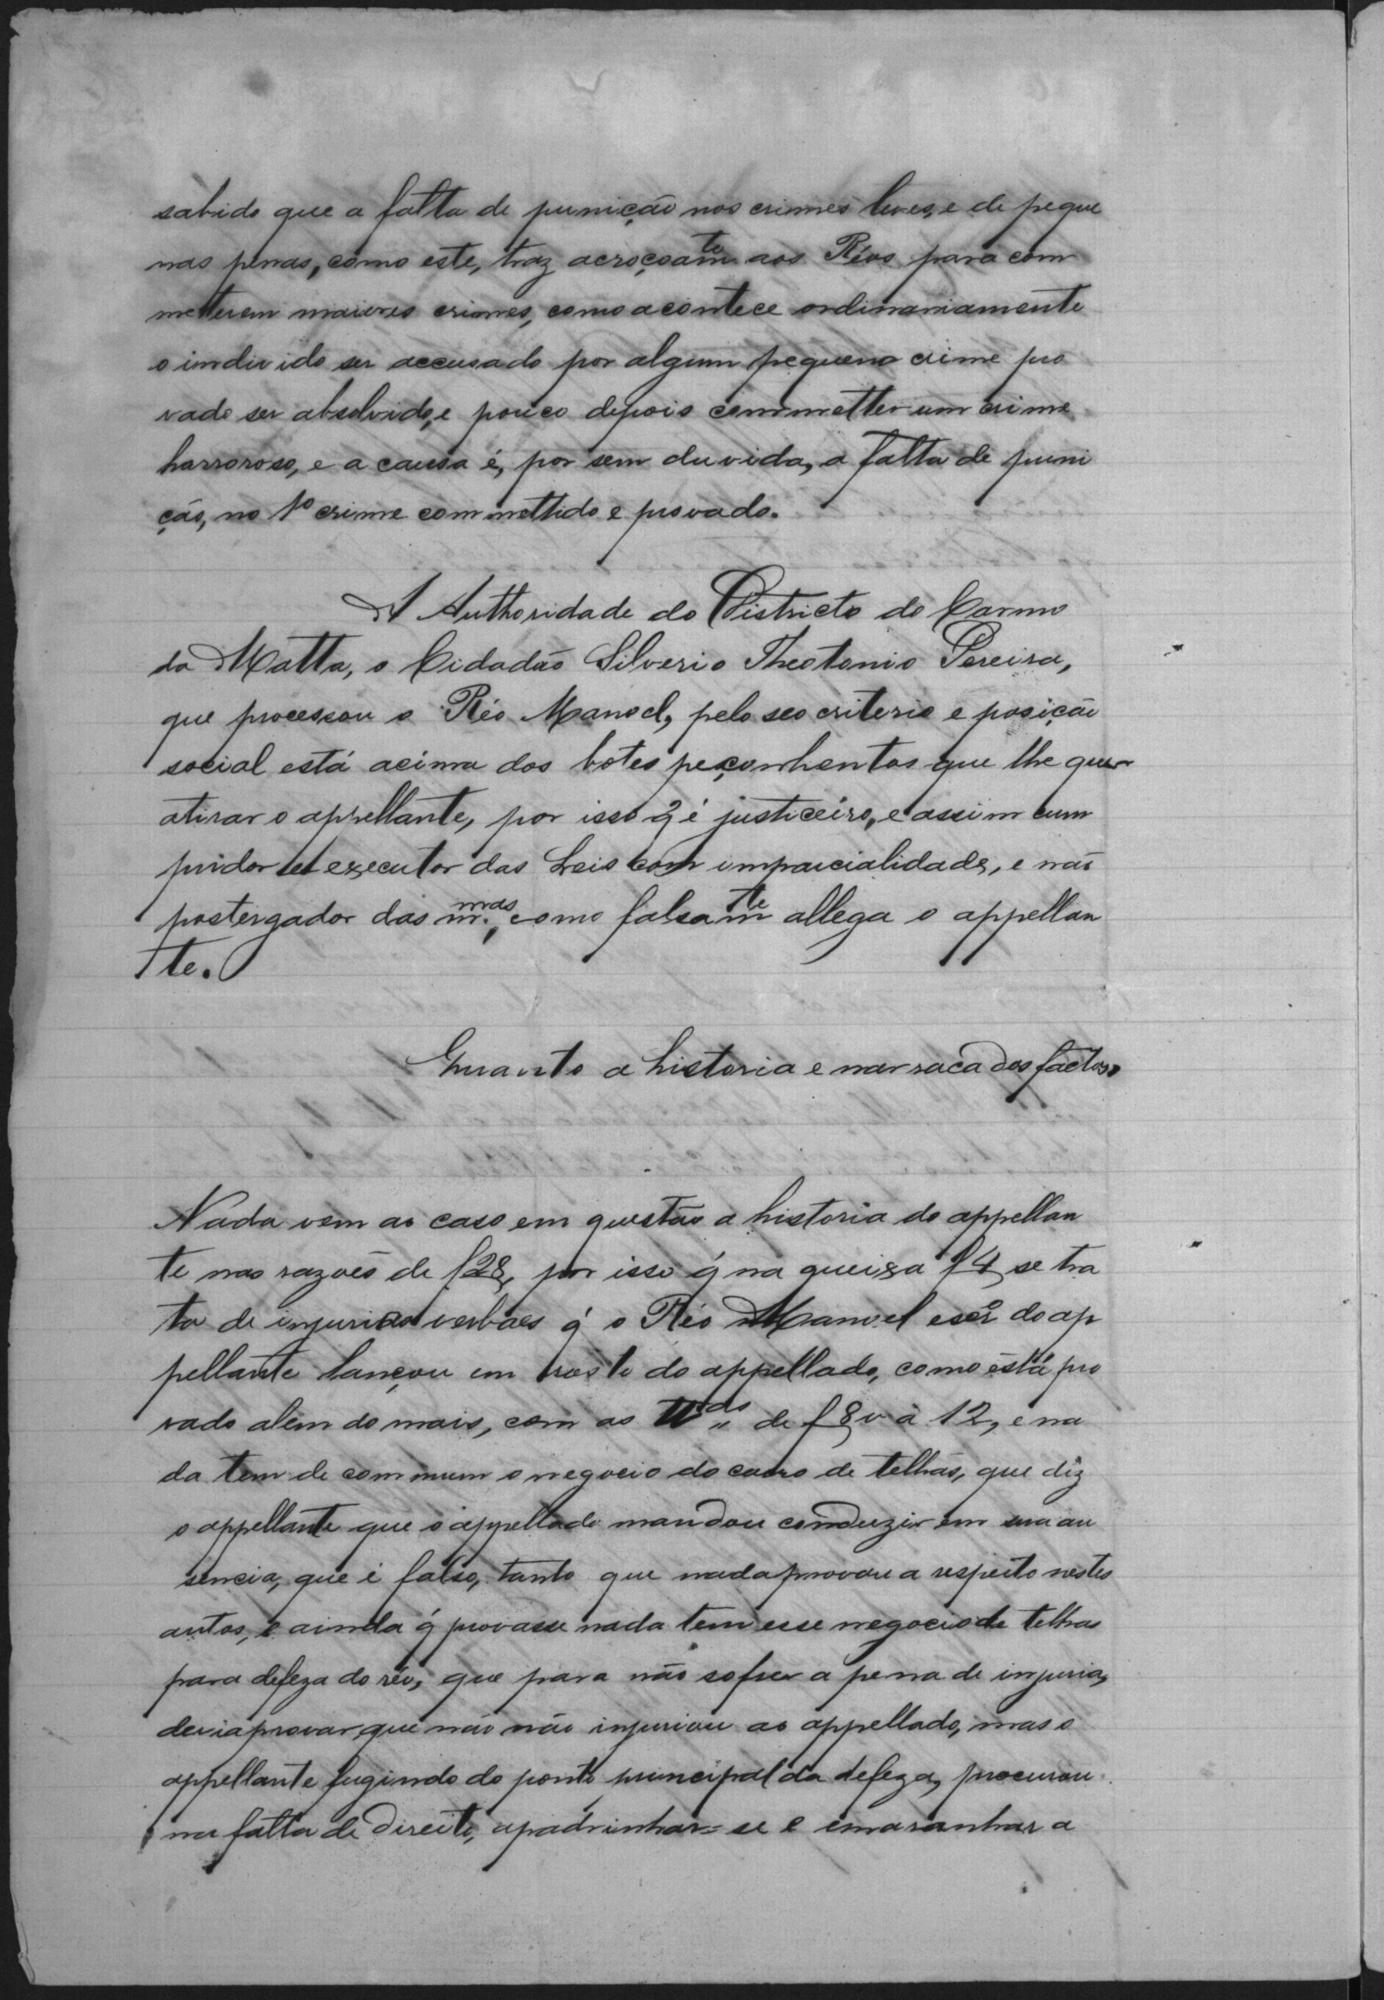 sabido que a falta de punição nos crimes leves, e de peque
nas penas, como este, traz acroçoamte aos Réos para com
metterem maiores crimes, como acontece ordinariamente
o individo ser accusado por algum pequeno crime pro
vado ser absolvido, e pouco depois commetter um crime
harroroso, e a causa é, por sem duvida, a falta de puni
ção, no 1º crime commettido e provado.
A Authoridade do Districto do Carmo
da Matta, o Cidadão Silverio Theotonio Pereira,
que processou o Réo Manoel, pelo seo criterio e posição
social está acima dos botes peçonhentos que lhe quer
atirar o appellante, por isso q̃ é justiceiro, e assim cum
pridor e executor das Leis com imparcialidade, e não
postergador das m.mas, como falsamte allega o appellan
te.
Quanto a historia e narraca dos factos.
Nada vem ao caso em questão a historia do appellan
te nas razoẽs de f 28, por isso q̃ na queixa f 4, se tra
ta de injurias verbaes q̃ o Réo Manoel do ap
pellante lançou em rosto do appellado, como está pro
vado alem do mais, com as de f 8 v à 12, e na
da tem de commum o negocio do carro de telhas, que diz
o appellante que o appellado mandou conduzir em sua au
sencia, que é falso, tanto que nada provou a respeito nestes
autos, e ainda q̃ provasse nada tem esse negocio de telhas
para defeza do réo, que para não sofrer a pena de injuria,
devia provar que não não injuriou ao appellado, mas o
appellante fugindo do ponto principal da defeza, procurou
na falta de direito, apadrinhar-se e emaranhar a